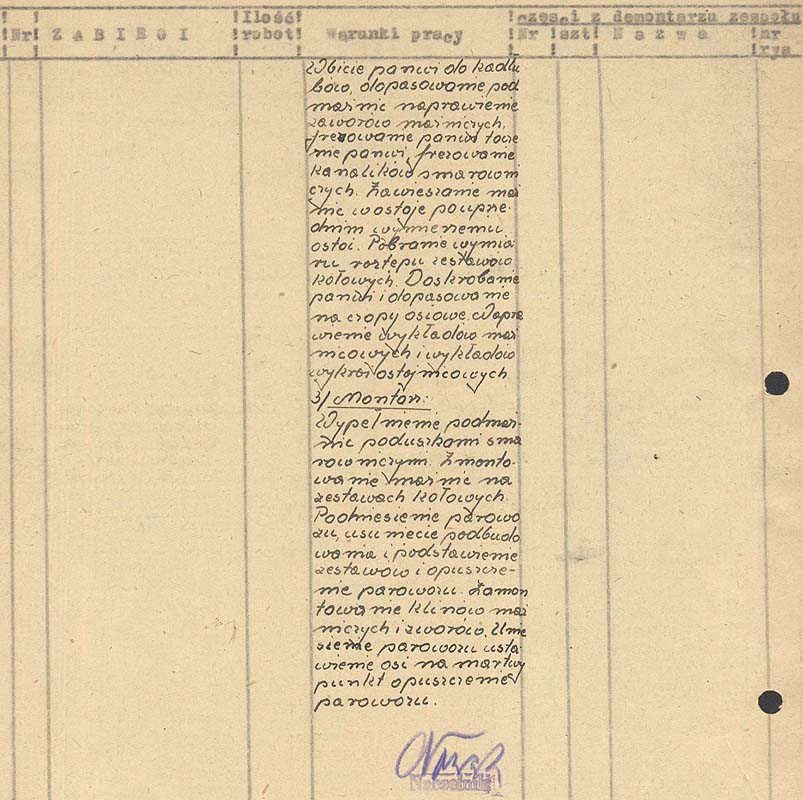 Nr ZABIEGI Ilość robot Warunki pracy części z demontarzu zespołu
Nr szt Nazwa nr rys
Wbicie panwi do kadłu
bów, dopasowanie pod
maźnic naprawienie
zaworów maźniczych.
frezowanie panwi tocze
nie panwi, frezowanie
kanalików smarowni
czych. Zawieszanie maź
nic w ostoje po uprze-
dnim wymierzeniu
ostoi. Pobranie wymia
ru roztępu zestawów
kołowych. Doskrobanie
panwi i dopasowanie
na czopy osiowe. Napra
wienie wykładów maź
nicowych i wykładów
wykroi ostojnicowych
3/ Montarz:
Wypełnienie podmaź-
nic poduszkami sma
rowniczymi. Zmonto-
wanie maźnic na
zestawach kołowych.
Podniesienie parowo
zu, usunięcie podbudo
wania i podstawienie
zestawów i opuszcze-
nie parowozu. Zamon
towanie klinów maź
niczych i zworów. Unie
sienie parowozu usta
wienie osi na martwy
punkt opuszczenie
parowozu.
Naczelnik